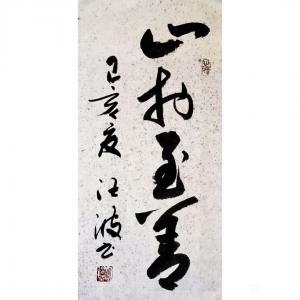 止於至善
己亥夏 汪波书